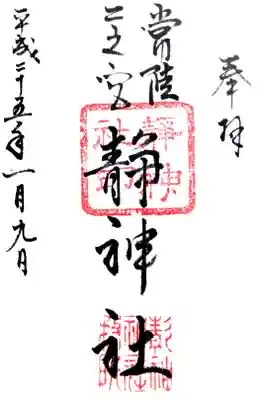 奉拝
常陸
二之宮
靜神社
平成二十五年一月九日